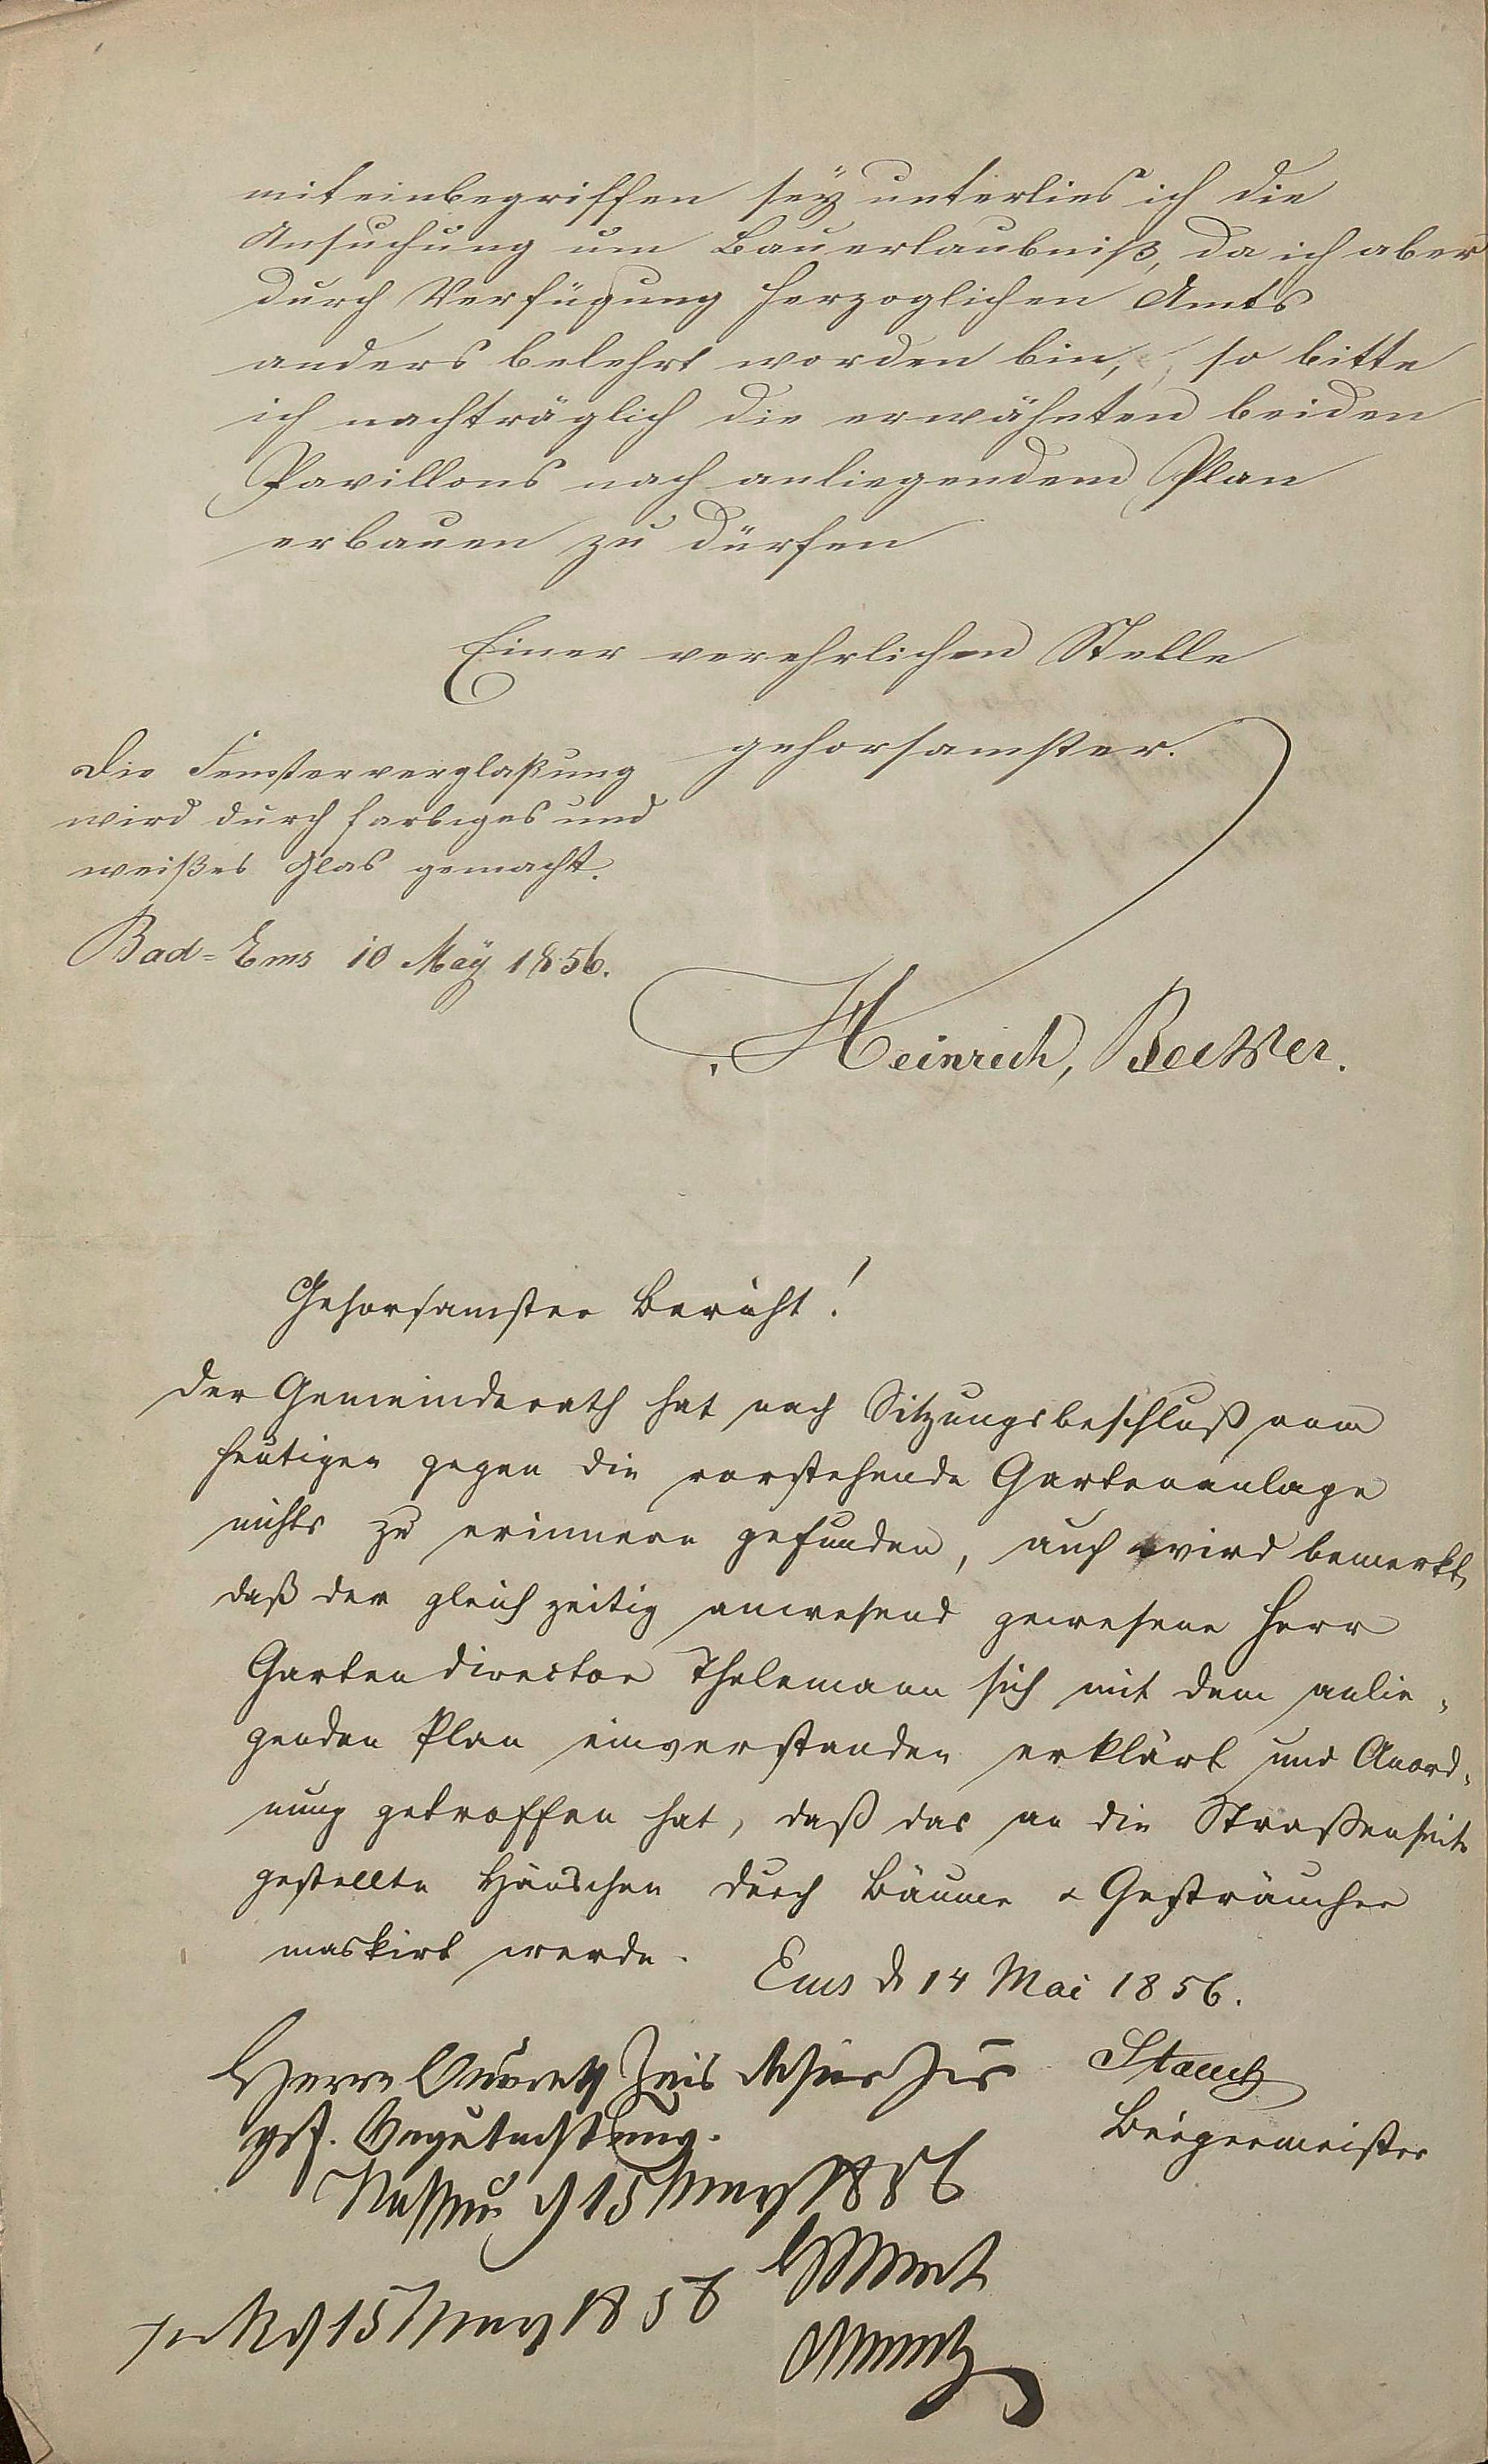 miteinbegriffen seÿ unterlies ich die
Ansuchung um Bauerlaubniß, da ich aber
durch Verfügung Herzoglichen Amts
anders belehrt worden bin, so bitte
ich nachträglich die erwähnten beiden
Pavillons nach anliegendem Plan
erbauen zu dürfen
Einer verehrlichen Stelle
gehorsamster.
Die Fensterverglaßung
wird durch farbiges und
weißes Glas gemacht.
Bad=Ems 10 Maÿ 1856.
Heinrich,
Gehorsamster Bericht!
Der Gemeinderath hat nach Sitzungsbeschluß vom
heutigen gegen die vorstehende Gartenanlage
nichts zu erinnern gefunden, auch wird bemerkt,
daß der gleichzeitig anwesend gewesene Herr
Gartendirector Thelemann sich mit dem anlie-
genden Plan einverstanden erklärt und Anord-
nung getroffen hat, daß das an die Straßenseite
gestellte Häuschen durch Bäume & Gesträucher
maskirt werde.
Ems d 14 Mai 1856.
Stauch
Bürgermeister
Herrn zur
gef. Begutachtung.
Nassau d 15 May 1856
15 May 1856